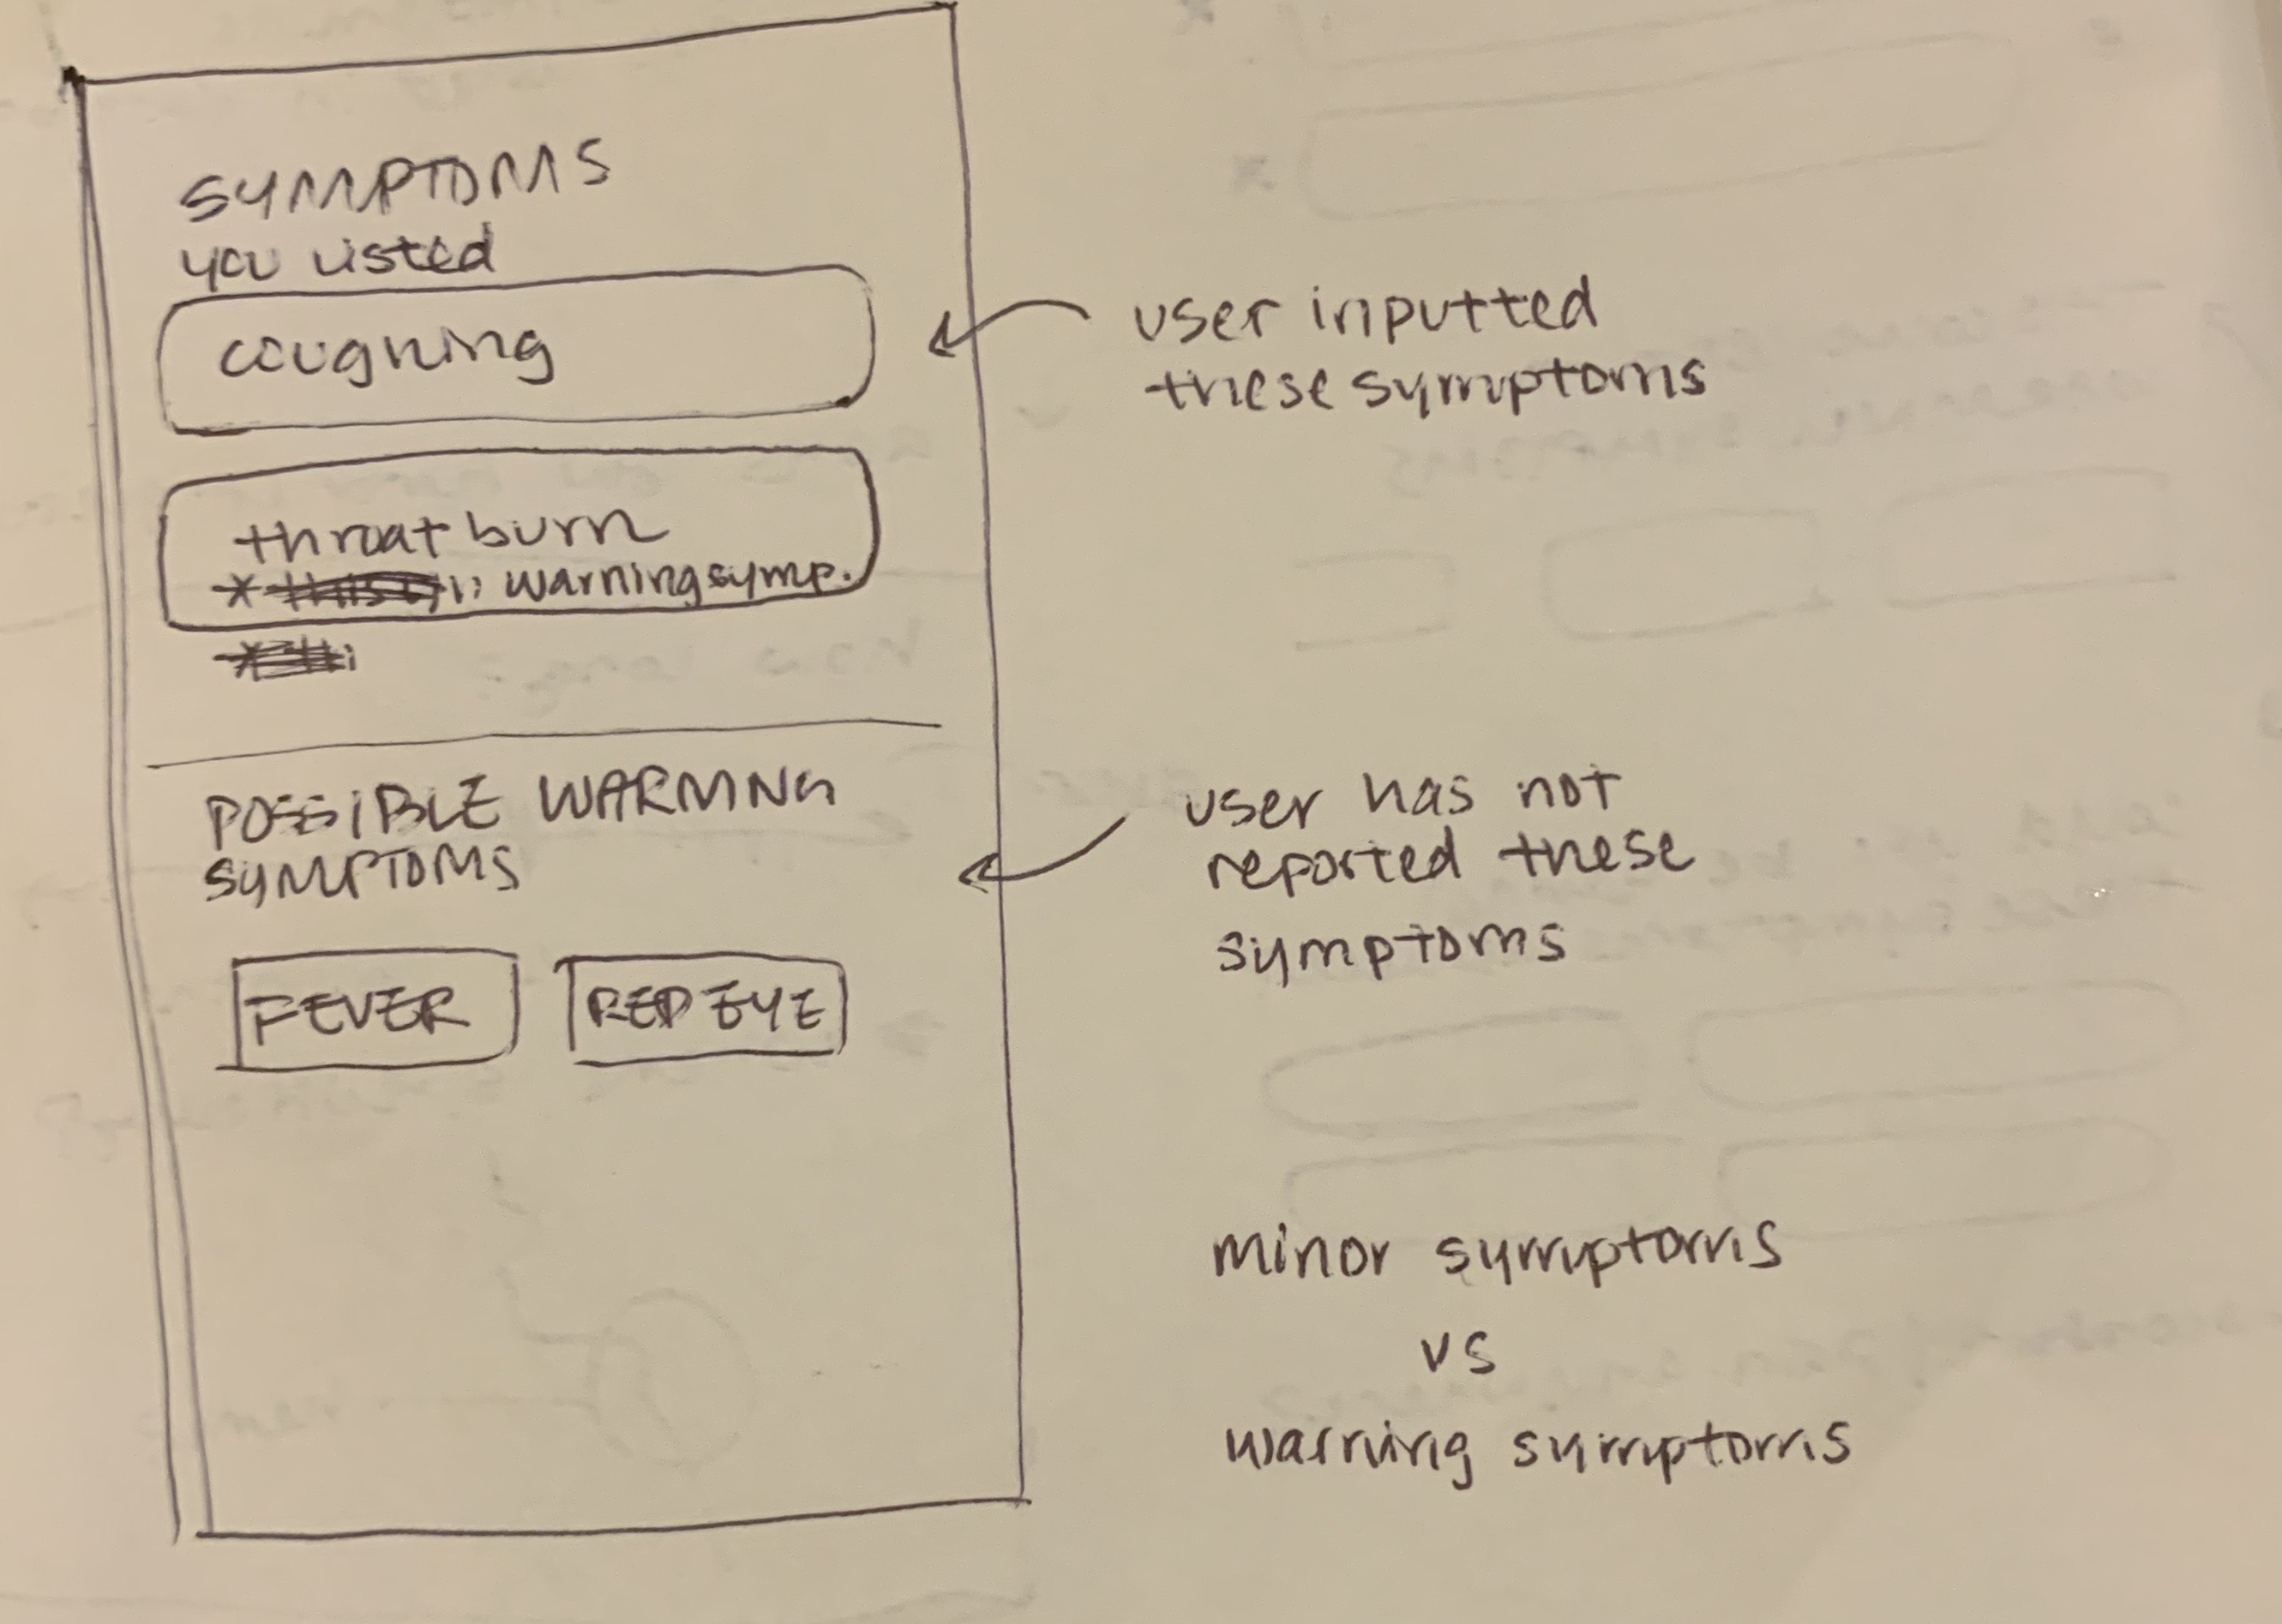 SYMPTOMS
you listed
coughing
throat burn
* warning symp.
POSSIBLE WARNING
SYMPTOMS
FEVER
RED EYE
user inputted
these symptoms
user has not
reported these
symptoms
minor symptoms
vs
warning symptoms